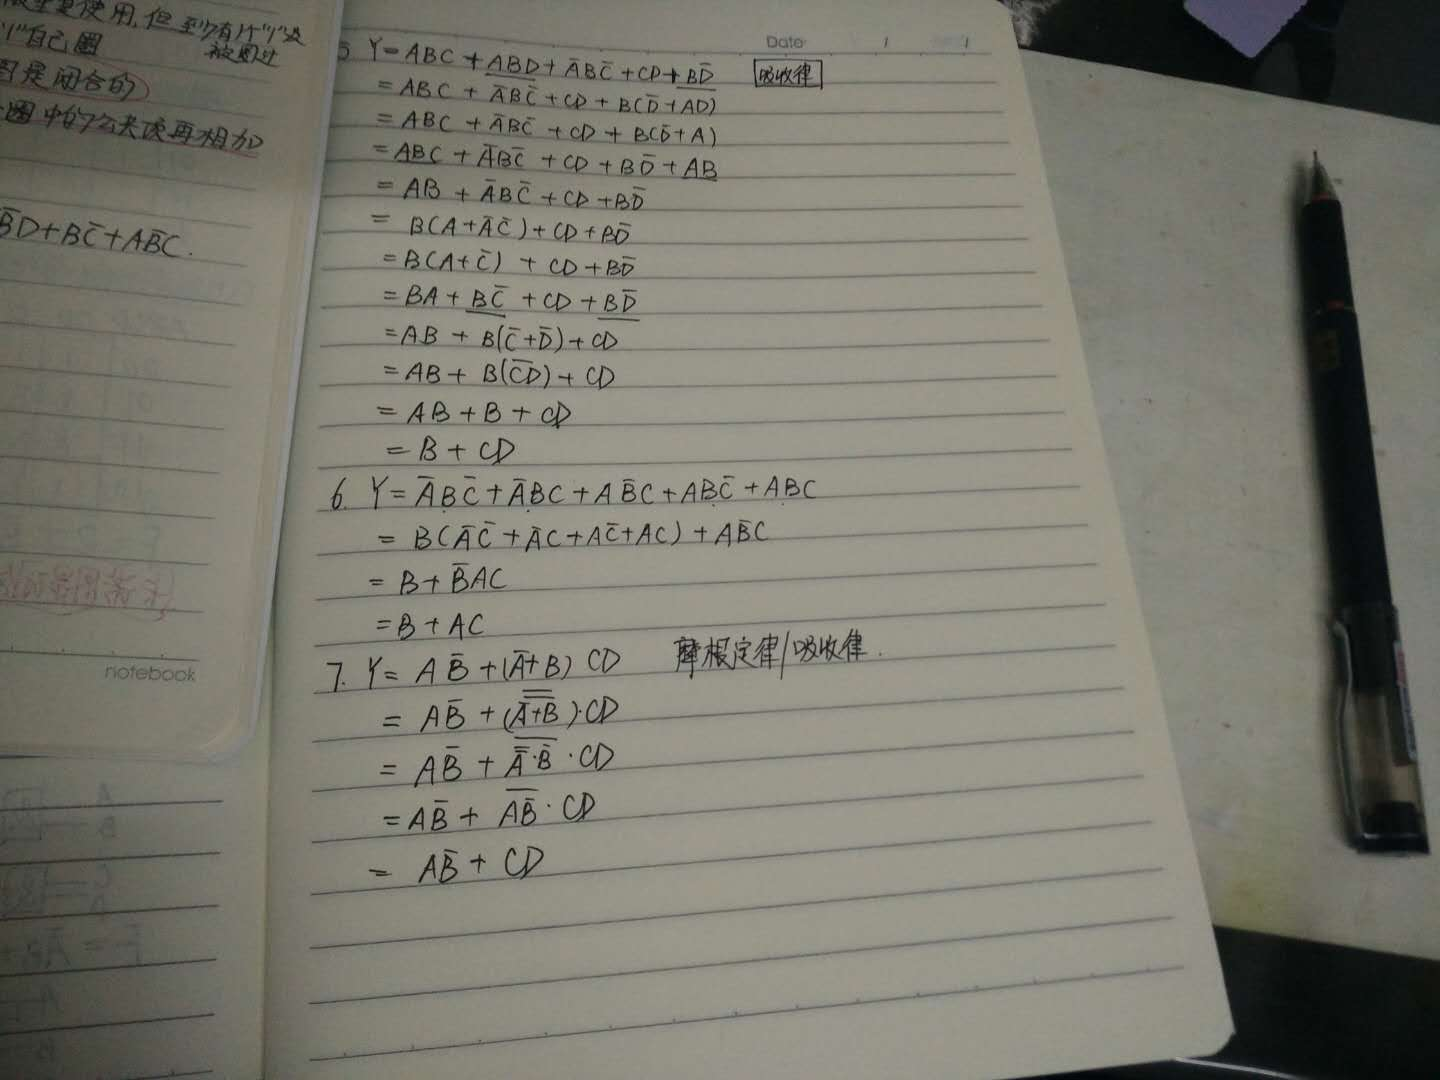 使用,但至少有1个"1"没
被圈过
"1"自己圈
图是闭合的
圈中的公共项再相加
B̄D+BC̄+AB̄C.
notebook
Date
5 Y=ABC+ABD+ĀBC̄+CD+BD̄ 吸收律
=ABC+ĀBC̄+CD+B(D̄+AD)
=ABC+ĀBC̄+CD+B(D̄+A)
=ABC+ĀBC̄+CD+BD̄+AB
=AB+ĀBC̄+CD+BD̄
=B(A+ĀC̄)+CD+BD̄
=B(A+C̄)+CD+BD̄
=BA+BC̄+CD+BD̄
=AB+B(C̄+D̄)+CD
=AB+B(C̅D̅)+CD
=AB+B+CD
=B+CD
6. Y=ĀBC̄+ĀBC+AB̄C+ABC̄+ABC
=B(ĀC̄+ĀC+AC̄+AC)+AB̄C
=B+B̄AC
=B+AC
7. Y=AB̄+(Ā+B)CD 摩根定律/吸收律.
=AB̄+(Ā̿+̿B̿)·CD
=AB̄+A̿̅·̅B̿·CD
=AB̄+A̅B̿·CD
=AB̄+CD